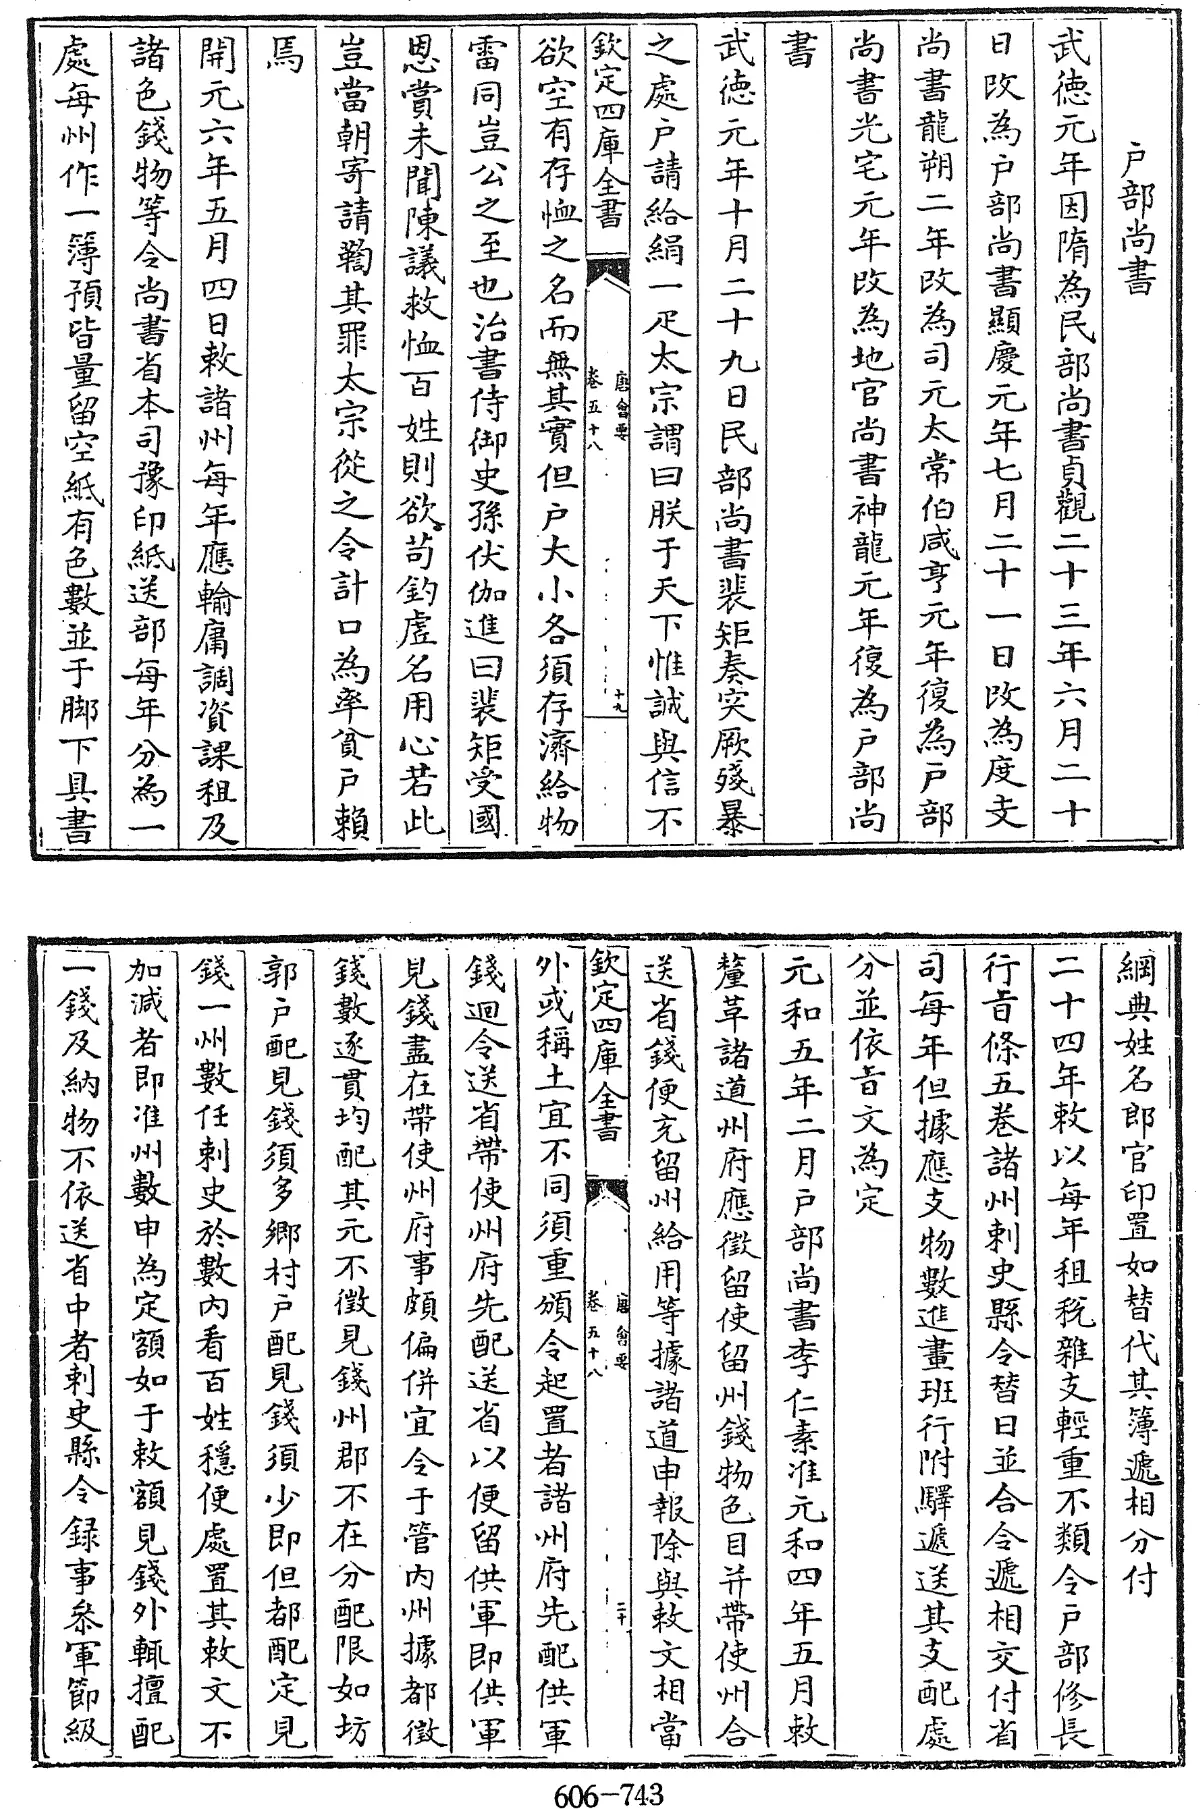 戶部尚書
武德元年因隋為民部尚書貞觀二十三年六月二十
日改為戶部尚書顯慶元年七月二十一日改為度支
尚書龍朔二年改為司元太常伯咸亨元年復為戶部
尚書光宅元年改為地官尚書神龍元年復為戶部尚
書
武德元年十月二十九日民部尚書裴矩奏突厥殘暴
之處戶請給絹一疋太宗謂曰朕于天下惟誠與信不
欽定四庫全書
唐會要
卷五十八
十九
欲空有存恤之名而無其實但戶大小各須存濟給物
雷同豈公之至也治書侍御史孫伏伽進曰裴矩受國
恩賞未聞陳議救恤百姓則欲苟釣虛名用心若此
豈當朝寄請鞫其罪太宗從之令計口為率貧戶賴
焉
開元六年五月四日敕諸州每年應輸庸調資課租及
諸色錢物等令尚書省本司豫印紙送部每年分為一
處每州作一簿預皆量留空紙有色數並于脚下具書
綱典姓名郎官印置如替代其簿遞相分付
二十四年敕以每年租稅雜支輕重不類令戶部修長
行旨條五卷諸州刺史縣令替日並合令遞相交付省
司每年但據應支物數進畫班行附驛遞送其支配處
分並依旨文為定
元和五年二月戶部尚書李仁素准元和四年五月敕
釐革諸道州府應徵留使留州錢物色目并帶使州合
送省錢便充留州給用等據諸道申報除與敕文相當
欽定四庫全書
唐會要
卷五十八
二十
外或稱土宜不同須重頒令起置者諸州府先配供軍
錢迴令送省帶使州府先配送省以便留供軍即供軍
見錢盡在帶使州府事頗偏併宜令于管內州據都徵
錢數逐貫均配其元不徵見錢州郡不在分配限如坊
郭戶配見錢須多鄉村戶配見錢須少即但都配定見
錢一州數任刺史於數內看百姓穩便處置其敕文不
加減者即准州數申為定額如于敕額見錢外輒擅配
一錢及納物不依送省中者刺史縣令録事叅軍節級
606-743